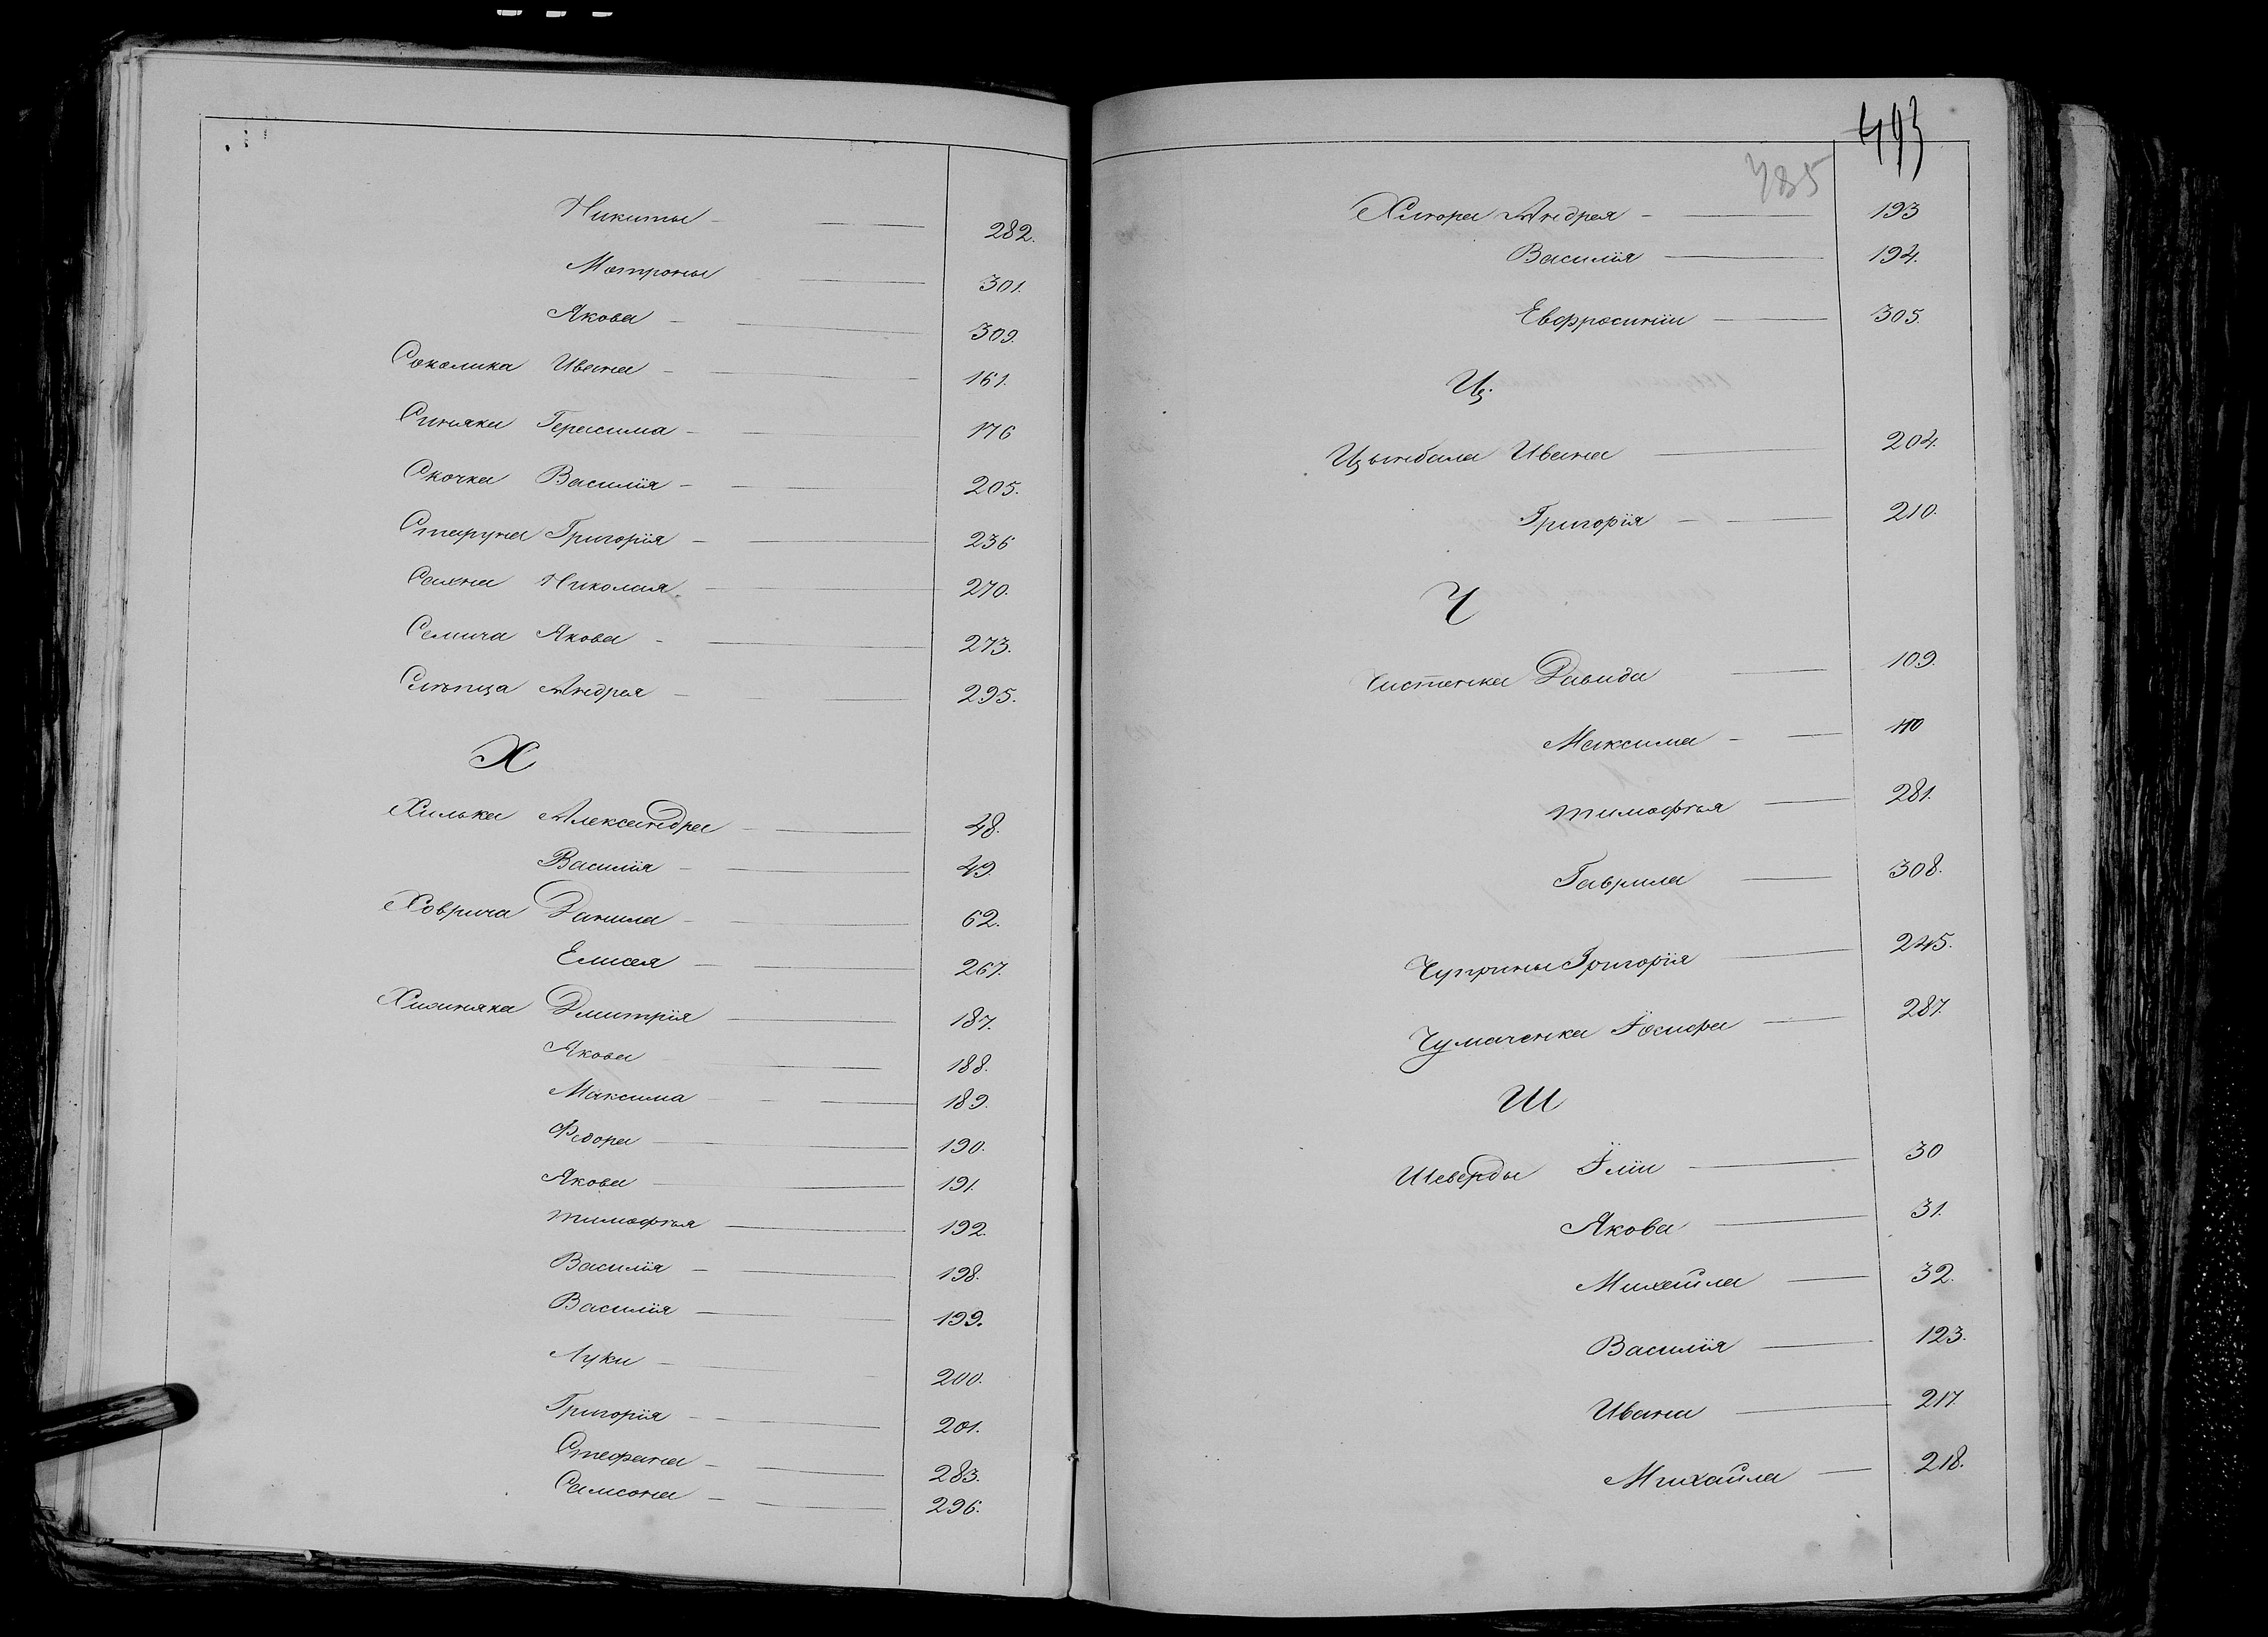 Никиты - — 282.
Мотроны — 301.
Якова - — 309.
Соколика Ивана - — 161.
Синяка Герасима - — 176
Скочка Василія - — 205.
Старуна Григорія - — 236
Саяна Николая. — 270.
Семича Якова - — 273.
Слѣпца Андрея - — 295.
Х
Хилька Александра - — 48.
Василія - — 49.
Ховрича Данила - — 62.
Елисея - — 267.
Хижняка Дмитрія — 187.
Якова — 188.
Максима - — 189.
Федора — 190.
Якова — 191.
Тимофѣя — 192.
Василія - — 198.
Василія — 199.
Луки - — 200.
Григорія - — 201.
Стефана - — 283.
Самсона - — 296.
493
485
Андрея - — 193
Василія — 194.
Евфросиніи — 305.
Ц.
Цымбала Ивана — 204.
Григорія - — 210.
Ч
Чистенка Давида — 109.
Максима - — 110
Тимофѣя — 281.
Гаврила — 308.
Чуприны Григорія — 245.
Чумаченка Іосифа — 287.
Ш
Шеверды Іліи — 30
Якова — 31.
Михаила — 32.
Василія — 123.
Ивана — 217.
Михаила — 218.